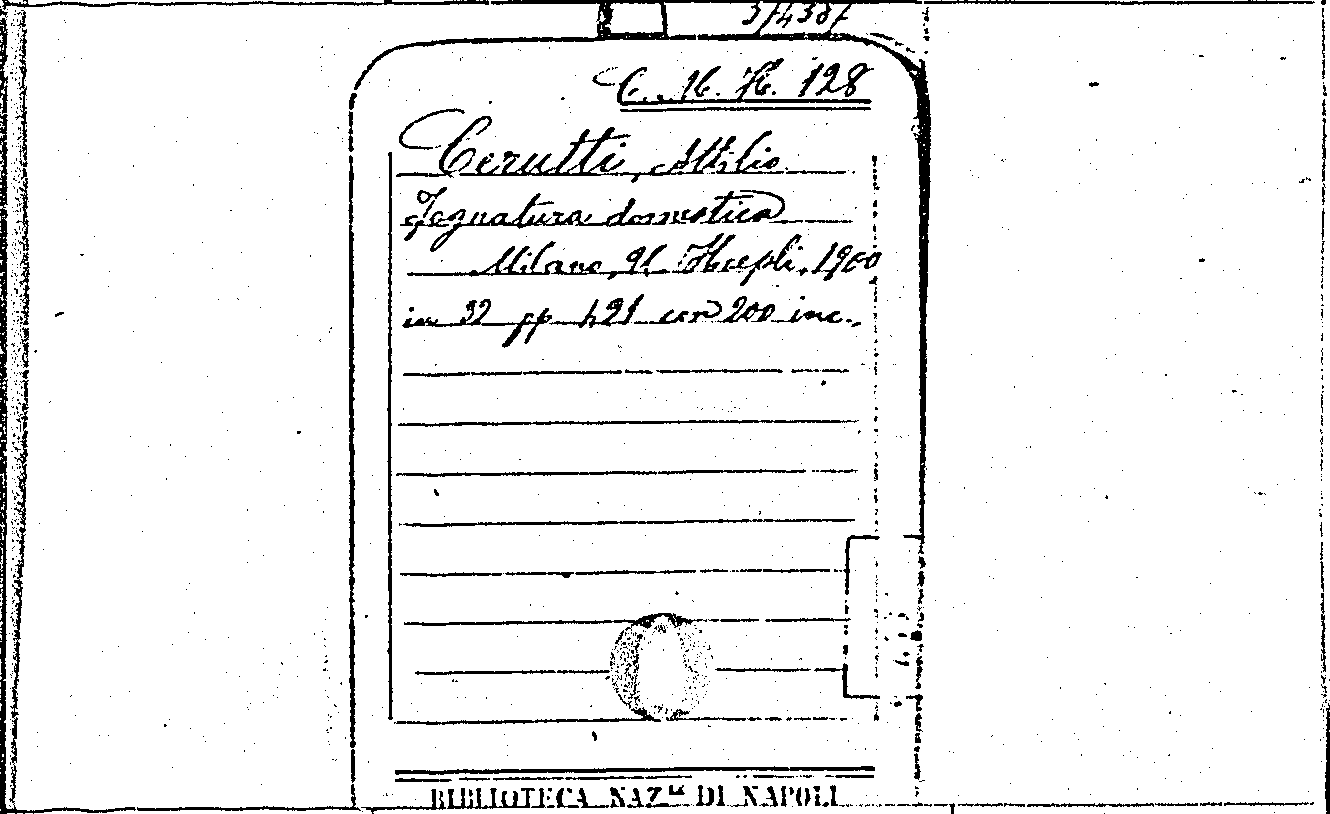 C. M. H. 128
Cerutti, Attilio
Fognatura domestica
Milano, U. Hoepli, 1900
in 32 pp 421 con 200 inc.
BIBLIOTECA NAZ.LE DI NAPOLI